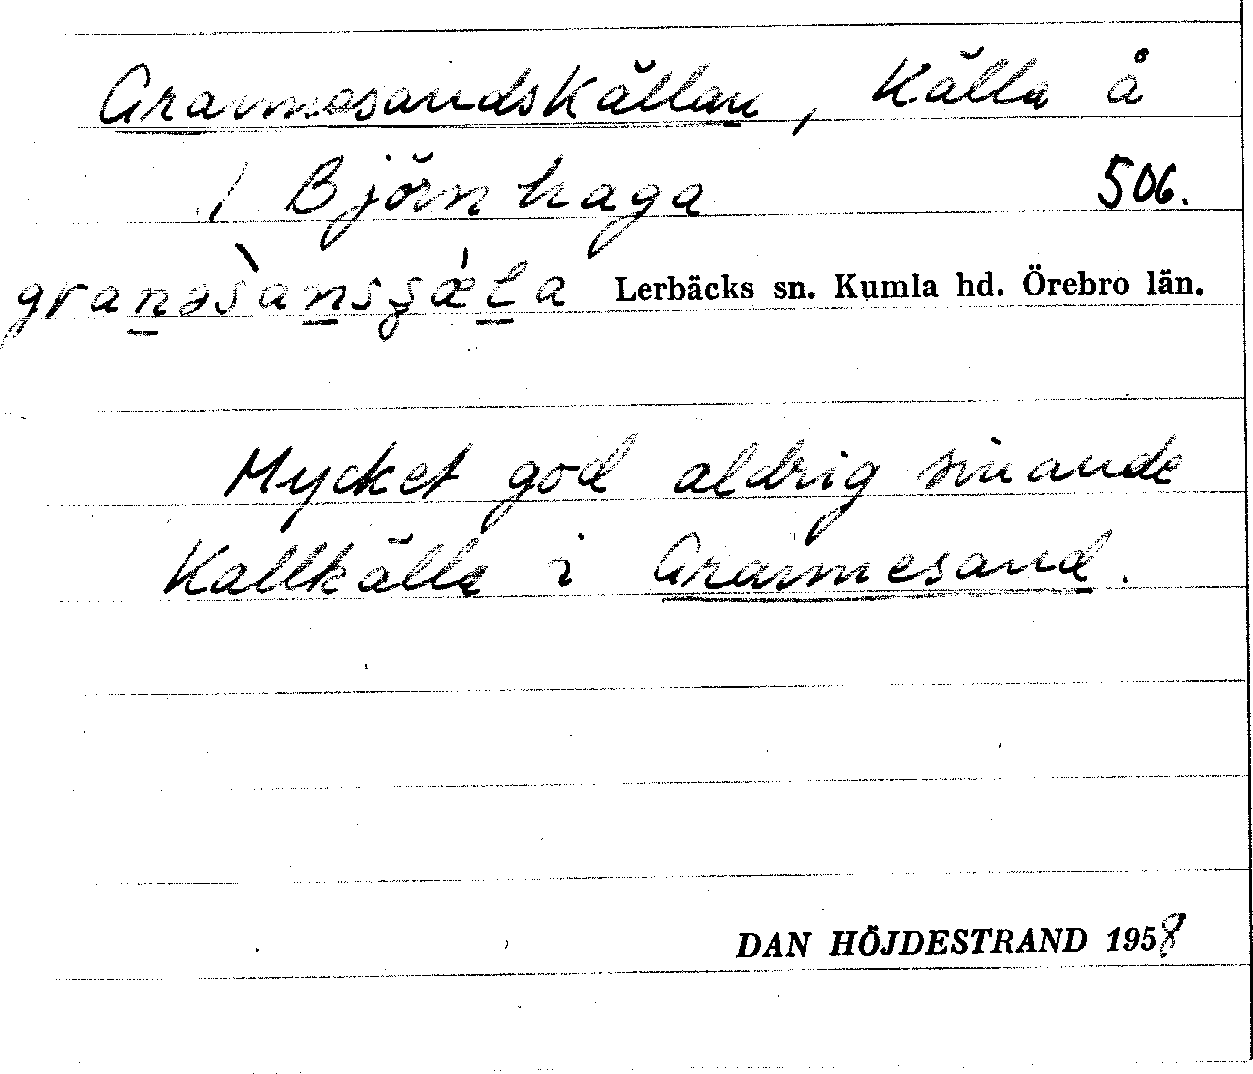 Grannesandskällan, Källa å
1 Björnhaga 506.
granəsànsʂǽla Lerbäcks sn. Kumla hd. Örebro län.
Mycket god aldrig sinande
Kallkälla i Grannesand.
DAN HÖJDESTRAND 1958